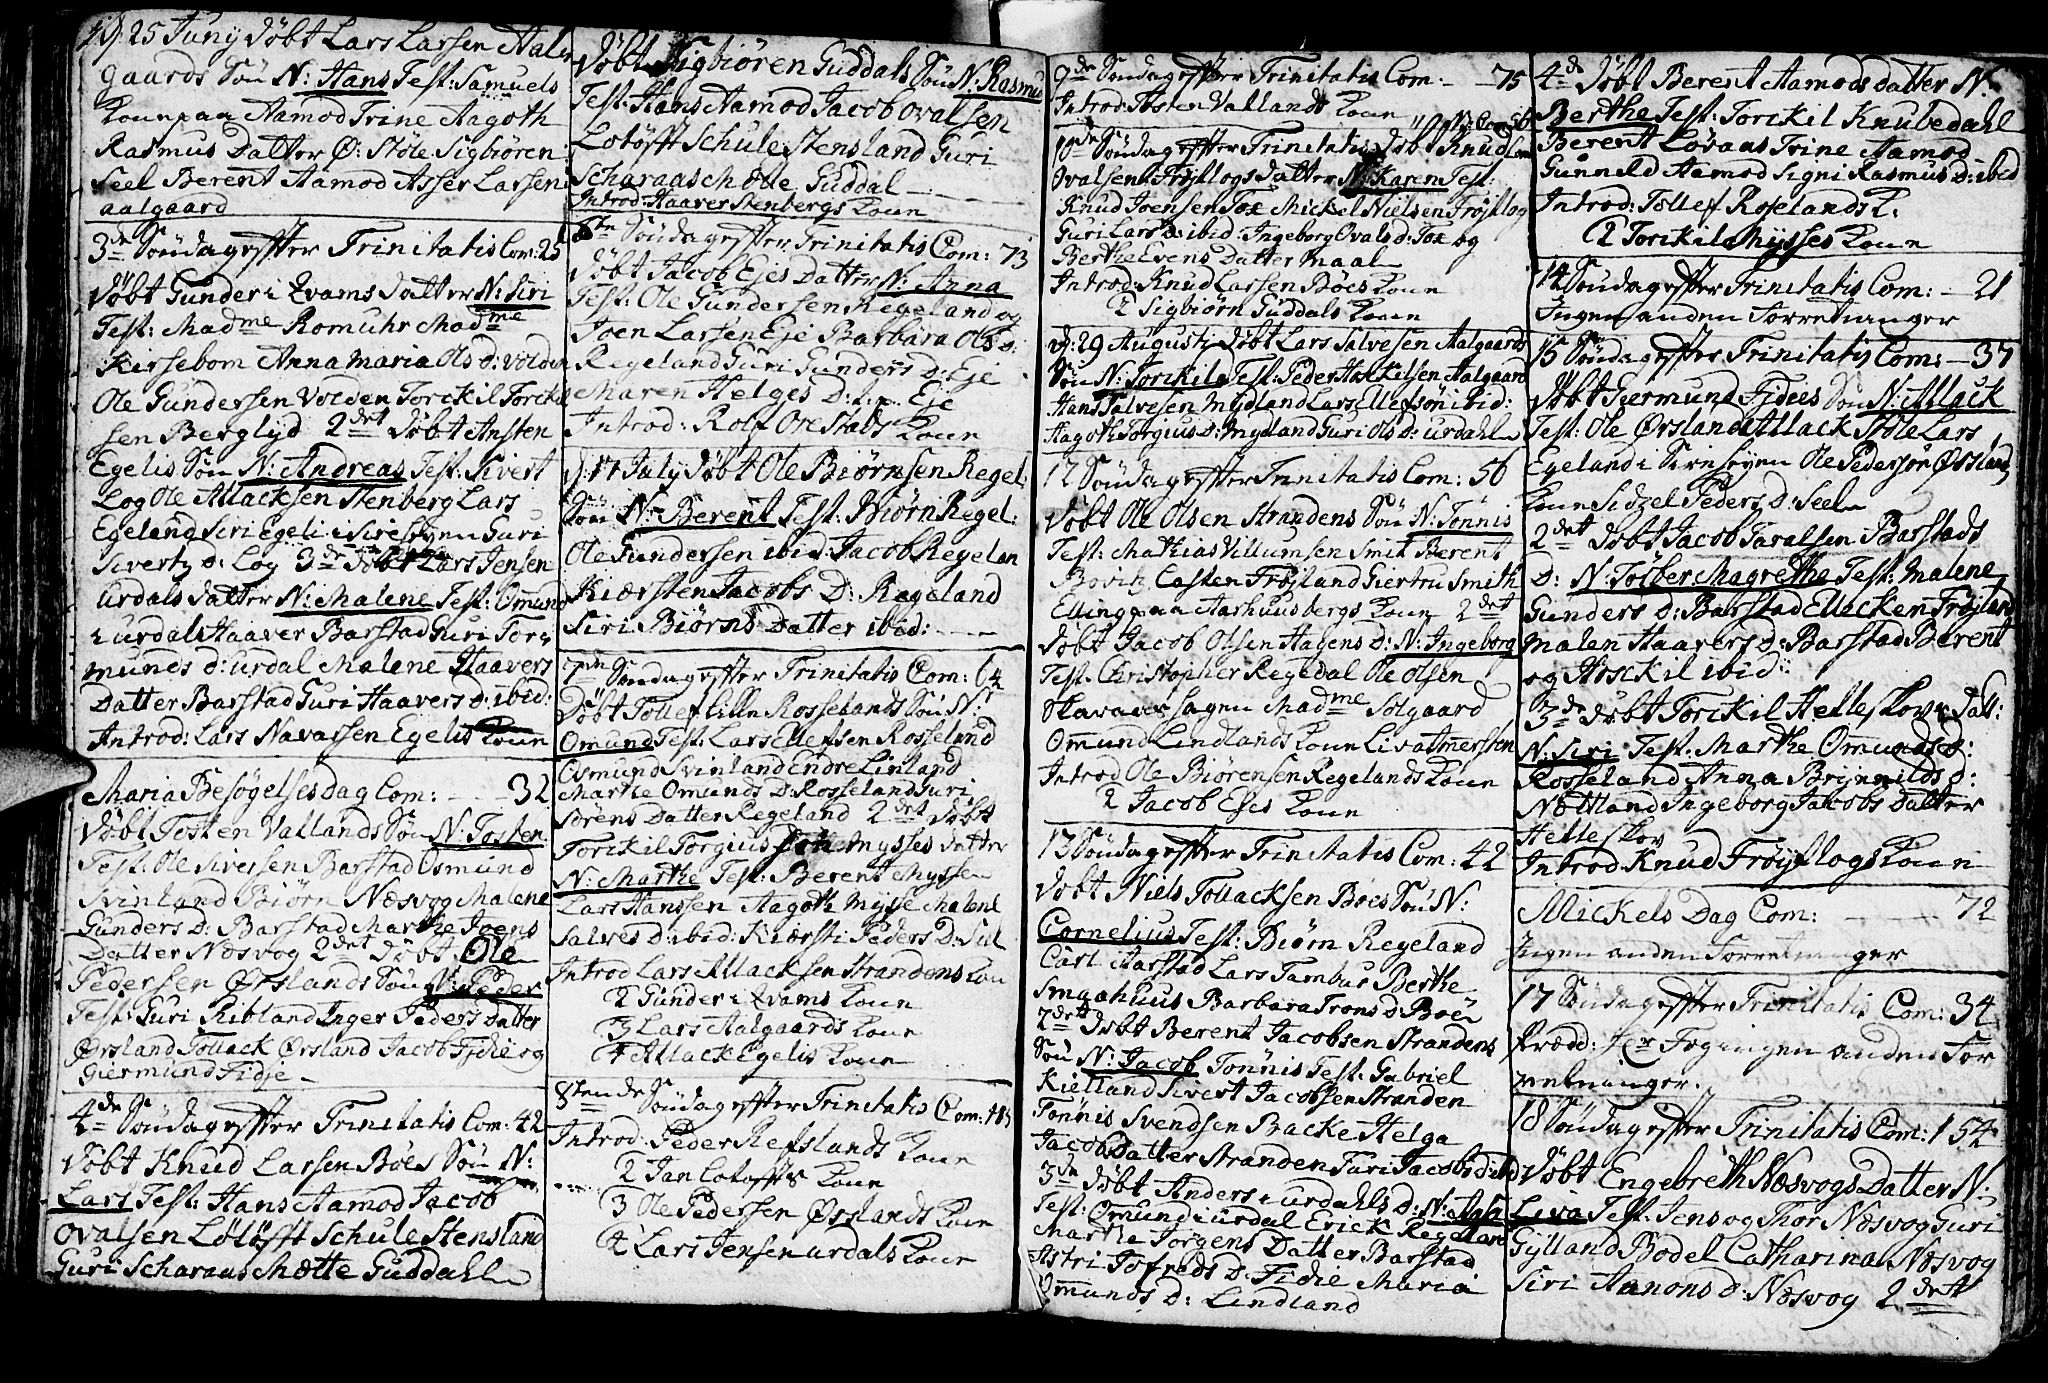 d: 25 Junij Döbt Lars Larsen Aale
gaards Sön N: Hans Test: Samuels
Kone paa Aamod Trine Aagoth
Rasmus Datter Ø: Stöle Sigbiören
Seel Berent Aamod Asser Larsen
aalgaard
3de Söndag effter Trinitatis Com: 25
Döbt Gunder i Qvams Datter N: Siri
Test: Madme Romuhr Madme
Kirsebom Anna Maria Ols D: Volden
Ole Gundersen Volden Torckil Torckil
sen Berglyd 2det Döbt Ansten
Egelis Sön N: Andreas Test: Sivert
Log Ole Atlacksen Stenberg Lars
Egeland Siri Egeli i Siresøyen Guri
Sivertz D: Log 3de Döbt Lars Jensen
Urdals Datter N: Malene Test: Omund
i urdal Haaver Barstad Guri Tor
munds D: urdal Malene Haavers
Datter Barstad Guri Haavers D: ibid:
Introd: Lars Navarsen Egelis Kone
Maria Besögelses Dag Com: - - 32
Döbt Tosten Vatlands Sön N: Tosten
Test: Ole Siversen Barstad Osmund
Svinland Biörn Næsvog Malene
Gunders D: Barstad Marthe Joens
Datter Næsvog 2det Döbt Ole
Pedersen Ørslands Sön N: Peder
Test: Guri Ribland Inger Peders Datter
Ørsland Tollack Ørsland Jacob Fidie og
Giermund Fidje
4de Söndag effter Trinitatis Com: 42
Döbt Knud Larsen Böes Sön N:
Lars Test: Hans Aamod Jacob
Ovalsen Lötöfft Schule Stensland
Guri Scharaas Mette Guddahl
Döbt Sigbiören Guddals Sön N: Rasmus
Test: Hans Aamod Jacob Ovalsen
Lotöfft Schule Stensland Guri
Scharaas Mette Guddal
Introd: Haaver Stenbergs Kone
6te Söndag effter Trinitatis Com: 73
Döbt Jacob Ejes Datter N: Anna
Test: Ole Gundersen Regeland og
Joen Larsen Eje Barbara Ols D:
Regeland Guri Gunders D: Eje
Maren Helges D: Eje
Introd: Rolf Orestads Kone
d: 17 July Döbt Ole Biörnsen Regel:
Sön N: Berent Test: Biörn Regel:
Ole Gundersen ibid: Jacob Regelan
Kiersten Jacobs D: Regeland
Siri Biörns Datter ibid:
7de Söndag effter Trinitatis Com: 64
Döbt Tollef lille Rosselands Sön N:
Omund Test: Lars Ellefsen Rosseland
Osmund Svinland Endre Linland
Marthe Omunds D: Rosseland Guri
Sörens Datter Regeland 2det Döbt
Torckil Torgius Mysses Datter
N: Marthe Test: Berent Myssen
Lars Hanssen Aagoth Mysse Malene
Salves D: ibid: Kiersti Peders D: Sul
Introd Lars Atlacksen Strandens Kon
2 Gunder i Qvams Kone
3 Lars Aalgaards Kone
4 Atlack Egelis Kone
8tende Söndag effter Trinitatis Com: 113
Introd: Peder Refslands Kone
2 Jan Lotoffts Kone
3 Ole Pedersen Ørslands Kone
4 Lars Jensen urdals Kone
9de Söndag effter Trinitatis Com: - - 75
Introd: Tosten Vatlands Kone
10de Söndag effter Trinitatis Döbt Knud
Ovalsen Fröjflogs Datter N: Karen Test:
Knud Joensen Tox Mickel Nielsen Fröjflog
Guri Lars D: ibid: Ingeborg Ovals D: Tox og
Berthe Evens Datter Maal
Introd: Knud Larsen Böes Kone
2 Sigbiörn Guddals Kone
d: 29 Augusti Döbt Lars Salvesen Aalgaards
Sön N: Torkild Test: Peder Hoskilsen Aalgaard
Hans Salvesen Mydland Lars Ellefsön ibid:
Aagoth Torgius D: Mydland Guri Ols D: urdahl
12 Söndag effter Trinitatis Com: 56
Döbt Ole Olsen Strandens Sön N: Tönnis
Test: Mathias Villumsen Smit Berent
Bovitz Casten Fröjland Giertru Smith
Elling paa Aarhuusbergs Kone 2det
Döbt Jacob Olsen Hagens D: N: Ingeborg
Test: Christopher Regedal Ole Olsen
Skaraas hagen Madme Solgaard
Omund Lindlands Kone Liva Omersen
Introd Ole Biörensen Regelands Kone
2 Jacob Ejes Kone
13 Söndag effter Trinitatis Com: 42
Döbt Niels Tollacksen Boes Sön N:
Cornelius Test: Biörn Regeland
Carl Aarstad Lars Tambur Berthe
Smaahuus Barbara Trons D: Böe
2det Döbt Berent Jacobsen Strandens
Sön N: Jacob Tönnis Test: Gabriel
Kielland Sivert Jacobsen Stranden
Tönnis Svendsen Backe Helga
Jacobs Datter Stranden Turi Jacobs D: ibid
3de Döbt Anders i urdahls D: N: Aasa
Test: Omund i urdal Erick Regeland
Marthe Jorgens Datter Barstad
Astri Tofreds D: Fidie Maria
Omunds D: Lindland
4de Döbt Berent Aamods Datter N:
Berthe Test: Torckil Knubedahl
Berent Lövaas Trine Aamod
Gunneld Aamod Signi Rasmus D: ibid
Introd: Tollef Roselands K:
2 Torckil Mysses Kone
14 Söndag effter Trinitatis Com: - 21
Ingen anden Forretninger
15 Söndag effter Trinitatis Com: - 37
Döbt Giermund Fjdies Sön N: Atlack
Test: Ole Ørsland Atlack Stöle Lars
Egeland i Siresøyen Ole Pedersön Ørslands
Kone Sidzel Peders D: Seel
2det Döbt Jacob Taralsen Barstads
D: N: Tolber Magrethe Test: Malene
Gunders D: Barstad Ellecken Fröjland
Malen Haavers D: Barstad Berent
og Hosckil ibid:
3de Döbt Torckil Helleskovs Datt:
N: Siri Test: Marthe Omunds D:
Rosseland Anna Brynnilds D:
Nætland Ingeborg Jacobs Datter
Helleskov
Introd: Knud Fröjflogs Kone
Mickels Dag Com: - - 72
Ingen anden Forretninger
17 Söndag effter Trinitatis Com: 34
Præd: Her Fog ingen anden For
retninger.
18 Söndag effter Trinitatis Com: 154
Döbt Engebreth Næsvogs Datter N:
Liva Test: Jens og Thor Næsvog Guri
Gylland Bodel Catharina Næsvog
Siri Aanons D: Næsvog 2det